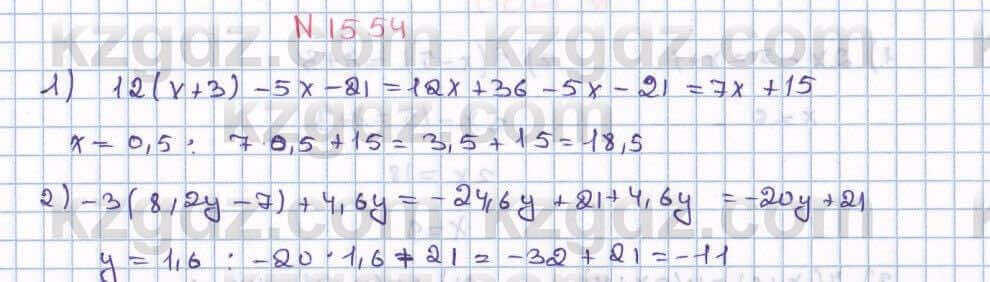 N 1554
1) 12(x+3) -5x-21=12x+36-5x-21=7x+15
x=0,5: 7·0,5+15=3,5+15=18,5
2) -3(8,2y-7)+4,6y=-24,6y+21+4,6y=-20y+21
y=1,6: -20·1,6+21=-32+21=-11
kzgdz.com kzgdz.com kzgdz.com